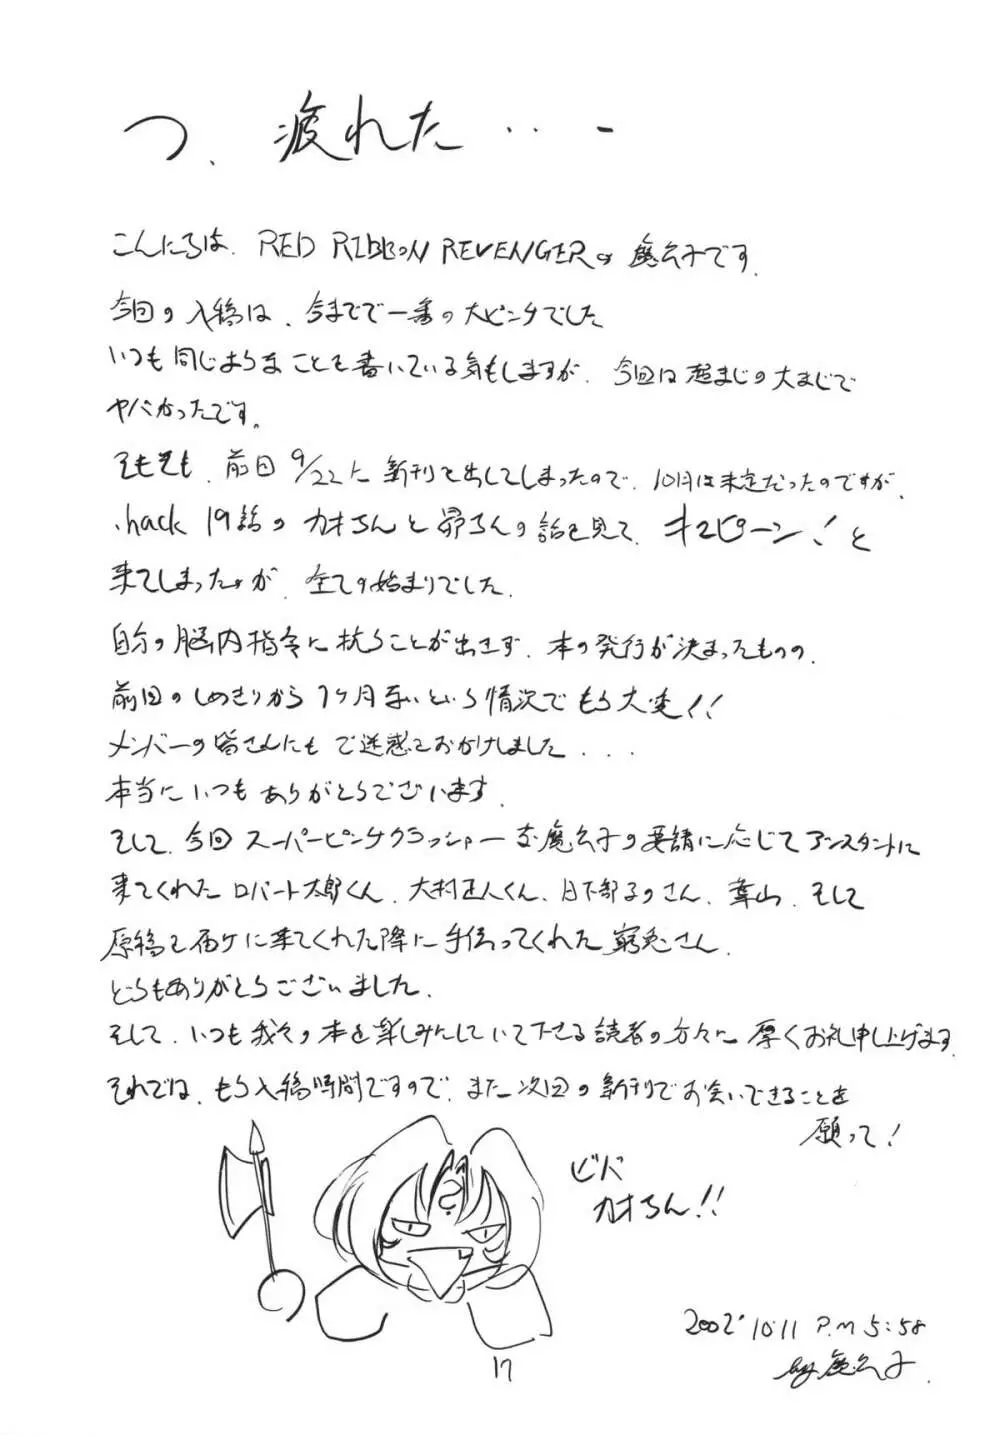 つ、疲れた・・・
こんにちは、RED RIBBON REVENGERの魔公子です。
今回の入稿は、今までで一番の大ピンチでした
いつも同じようなことを書いている気もしますが、今回は超まじの大まじで
ヤバかったです。
そもそも、前回9/22に新刊を出してしまったので、10月は未定だったのですが、
.hack 19話のカオちんと昴ちんの話を見て、キュピーン!と
来てしまったのが、全ての始まりでした。
自分の脳内指令に抗うことが出来ず、本の発行が決まったものの、
前回のしめきりから1ヶ月ないという情況でもう大変!!
メンバーの皆さんにもご迷惑をおかけしました・・・
本当にいつもありがとうございます。
そして、今回スーパーピンチクラッシャーな魔公子の要請に応じてアシスタントに
来てくれたロバート太郎くん、大村正人くん、日下部さん、葉山、そして
原稿を届けに来てくれた際に手伝ってくれた窮兎さん、
どうもありがとうございました。
そして、いつも我々の本を楽しみにしていて下さる読者の方々に厚くお礼申し上げます。
それでは、もう入稿時間ですので、また次回の新刊でお会いできることを
願って!
ビバ
カオちん!!
2002' 10.11 P.M 5:58
by魔公子.
17